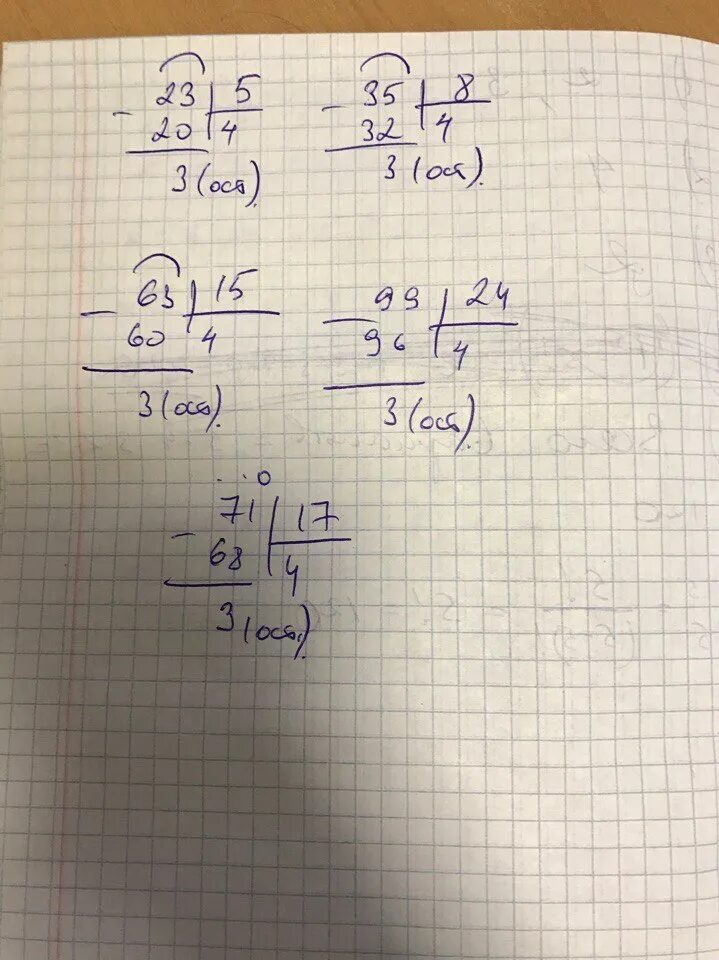 23 5
- 20 4
3 (ост).
35 8
- 32 4
3 (ост).
63 15
- 60 4
3 (ост).
99 24
- 96 4
3 (ост).
0
71 17
- 68 4
3 (ост.)